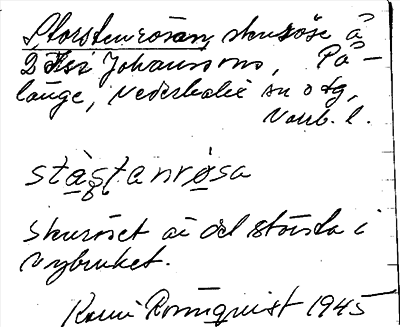 Storstensrösan, stenröse å
2 Johanssons, På-
länge, Nederkalix sn o tg,
Norrb. l.
stạstanrọsa
Stenröset är det största i
nybruket.
Karin Rönnquist 1945